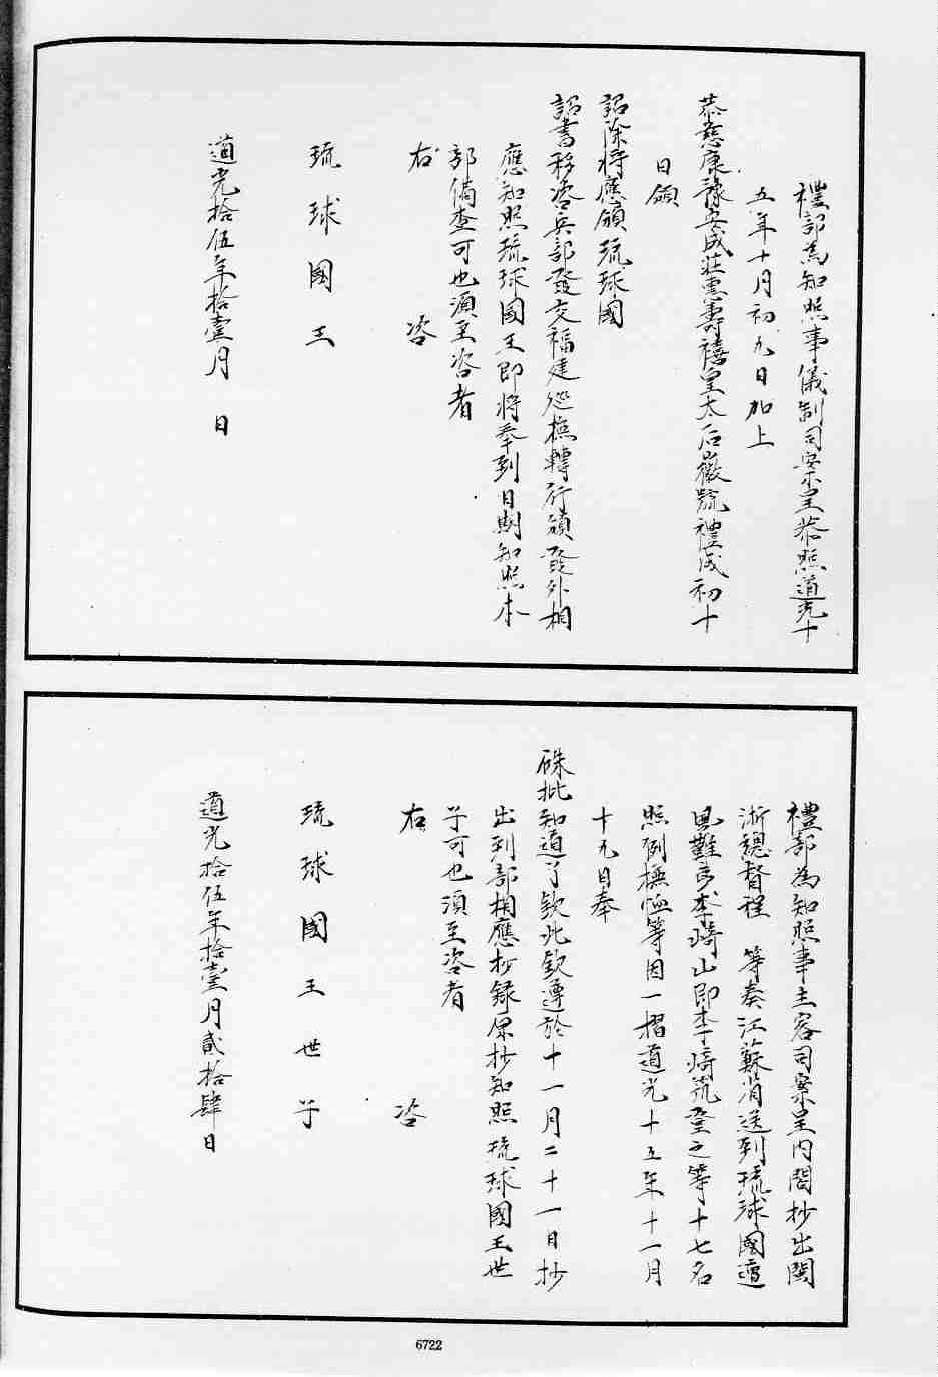 禮部為知照事儀制司案呈恭照道光十
五年十月初九日加上
恭慈康豫安成莊惠壽禧皇太后徽號禮成初十
日頒
詔除將應頒琉球國
詔書移咨兵部發交福建巡撫轉行頒發外相
應知照琉球國王即將奉到日期知照本
部備查可也須至咨者
右　咨
琉球國王
道光拾伍年拾壹月　日
禮部為知照事主客司案呈內閣抄出閩
浙總督程　等奏江蘇省送到琉球國遭
風難夷李崎山即李崎筑登之等十七名
照例撫恤等因一摺道光十五年十一月
十九日奉
硃批知道了欽此欽遵於十一月二十一日抄
出到部相應抄錄原抄知照琉球國王世
子可也須至咨者
右　咨
琉球國王世子
道光拾伍年拾壹月貳拾肆日
6722